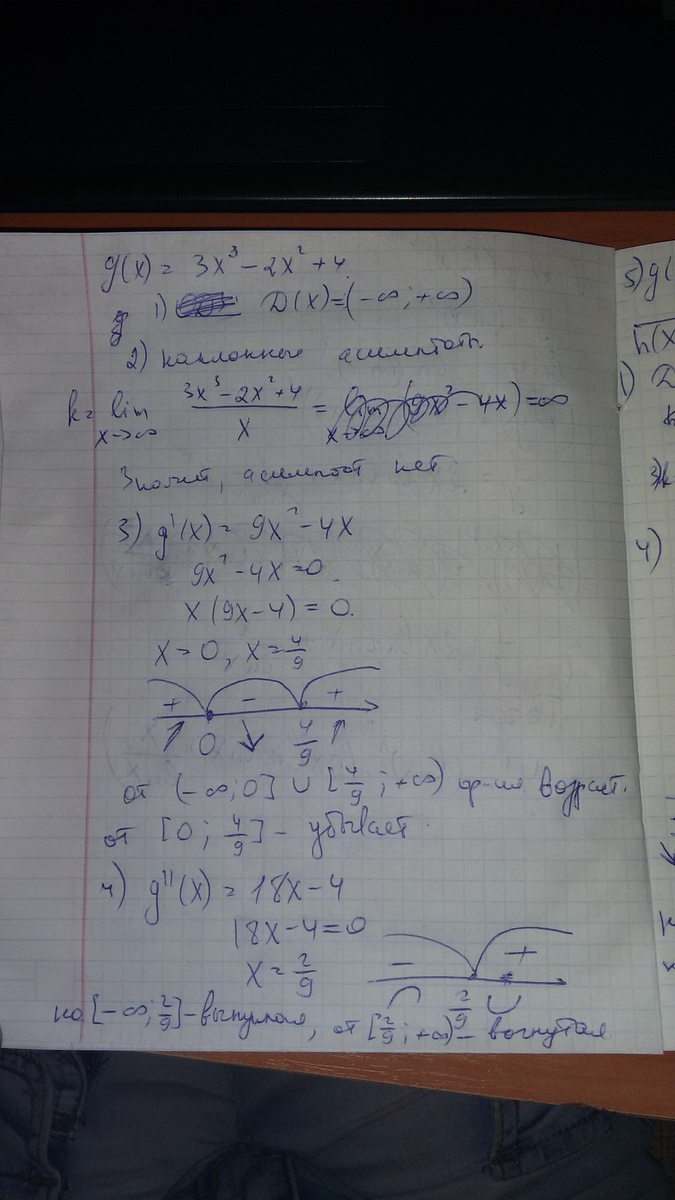 g(x) = 3x³ - 2x² + 4
1) D(x)=(-∞; +∞)
2) наклонные асимптоты
k = lim x→∞ (3x³ - 2x² + 4)/x = = ∞
Значит, асимптот нет
3) g'(x) = 9x² - 4x
9x² - 4x = 0.
x (9x - 4) = 0.
x = 0, x = 4/9
+ - +
↑ 0 ↓ 4/9 ↑
от (-∞; 0] ∪ [4/9; +∞) ф-ия возраст.
от [0; 4/9] - убывает.
4) g''(x) = 18x - 4
18x - 4 = 0
x = 2/9
- +
2/9
на [-∞; 2/9] - выпуклая, от [2/9; +∞) - вогнутая
5) g(
h(x
1) D
4)